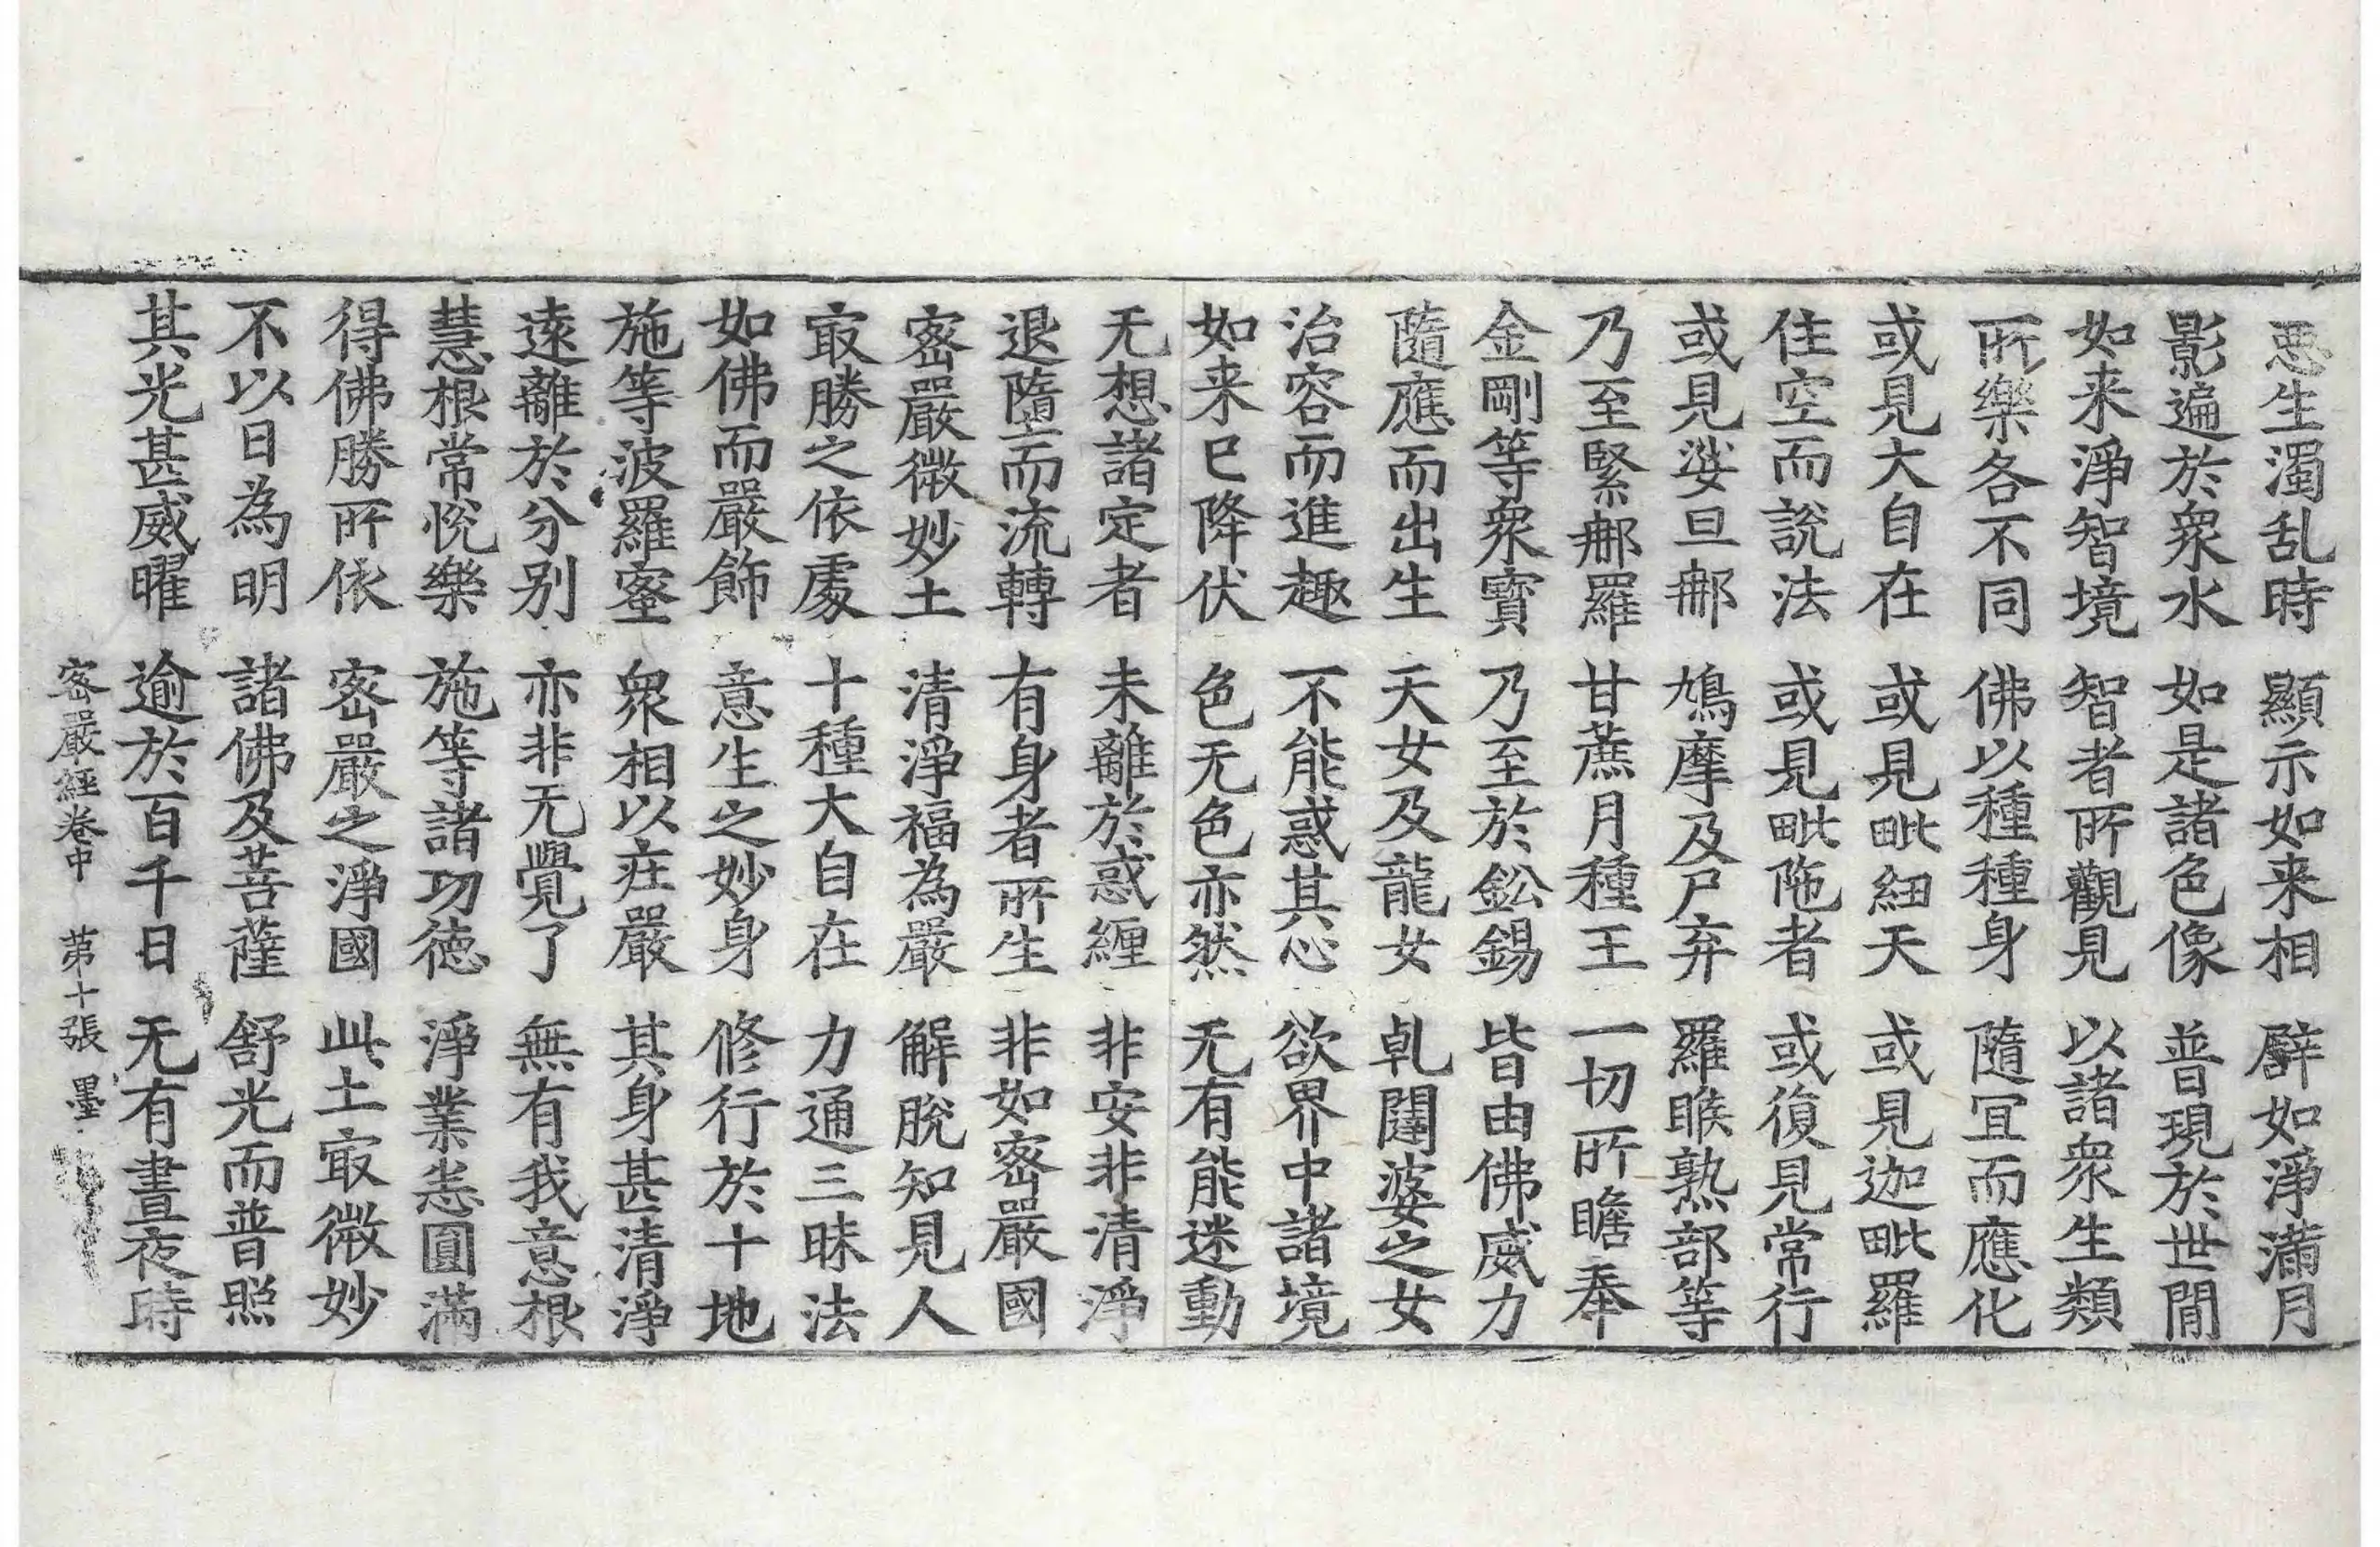 悪生濁乱時 顯示如来相 辟如淨滿月
影遍於衆水 如是諸色像 普現於世間
如来淨智境 智者所觀見 以諸衆生類
所樂各不同 佛以種種身 隨冝而應化
或見大自在 或見毗紐天 或見迦毗羅
住空而說法 或見毗陁者 或復見常行
或見娑旦郍 鳩摩及尸弃 羅睺熟部等
乃至緊郍羅 甘蔗月種王 一切所瞻奉
金剛等衆寶 乃至於鈆錫 皆由佛威力
隨應而出生 天女及龍女 乹闥婆之女
治容而進趣 不能惑其心 欲界中諸境
如来已降伏 色无色亦然 无有能迷動
无想諸定者 未離於惑纏 非安非清淨
退墮而流轉 有身者所生 非如密嚴國
密嚴微妙土 清淨福為嚴 解脫知見人
㝡勝之依處 十種大自在 力通三昧法
如佛而嚴飾 意生之妙身 修行於十地
施等波羅蜜 衆相以莊嚴 其身甚清淨
遠離於分別 亦非无覺了 無有我意根
慧根常悅樂 施等諸功徳 淨業悉圓滿
得佛勝所依 密嚴之淨國 此土㝡微妙
不以日為明 諸佛及菩薩 舒光而普照
其光甚威曜 逾於百千日 无有晝夜時
密嚴經卷中 苐十張 墨